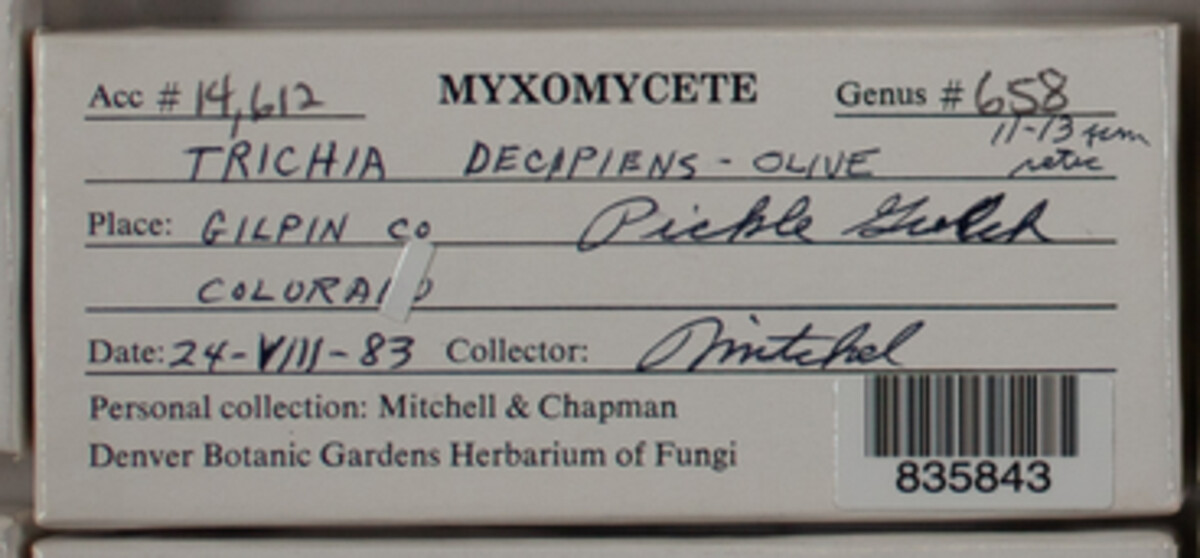 Acc # 14,612 MYXOMYCETE Genus # 658
11-13 µm
TRICHIA DECIPIENS - OLIVE retic
Place: GILPIN CO Pickle Gulch
COLORADO
Date: 24-VIII-83 Collector: Mitchel
Personal collection: Mitchell & Chapman
Denver Botanic Gardens Herbarium of Fungi
835843